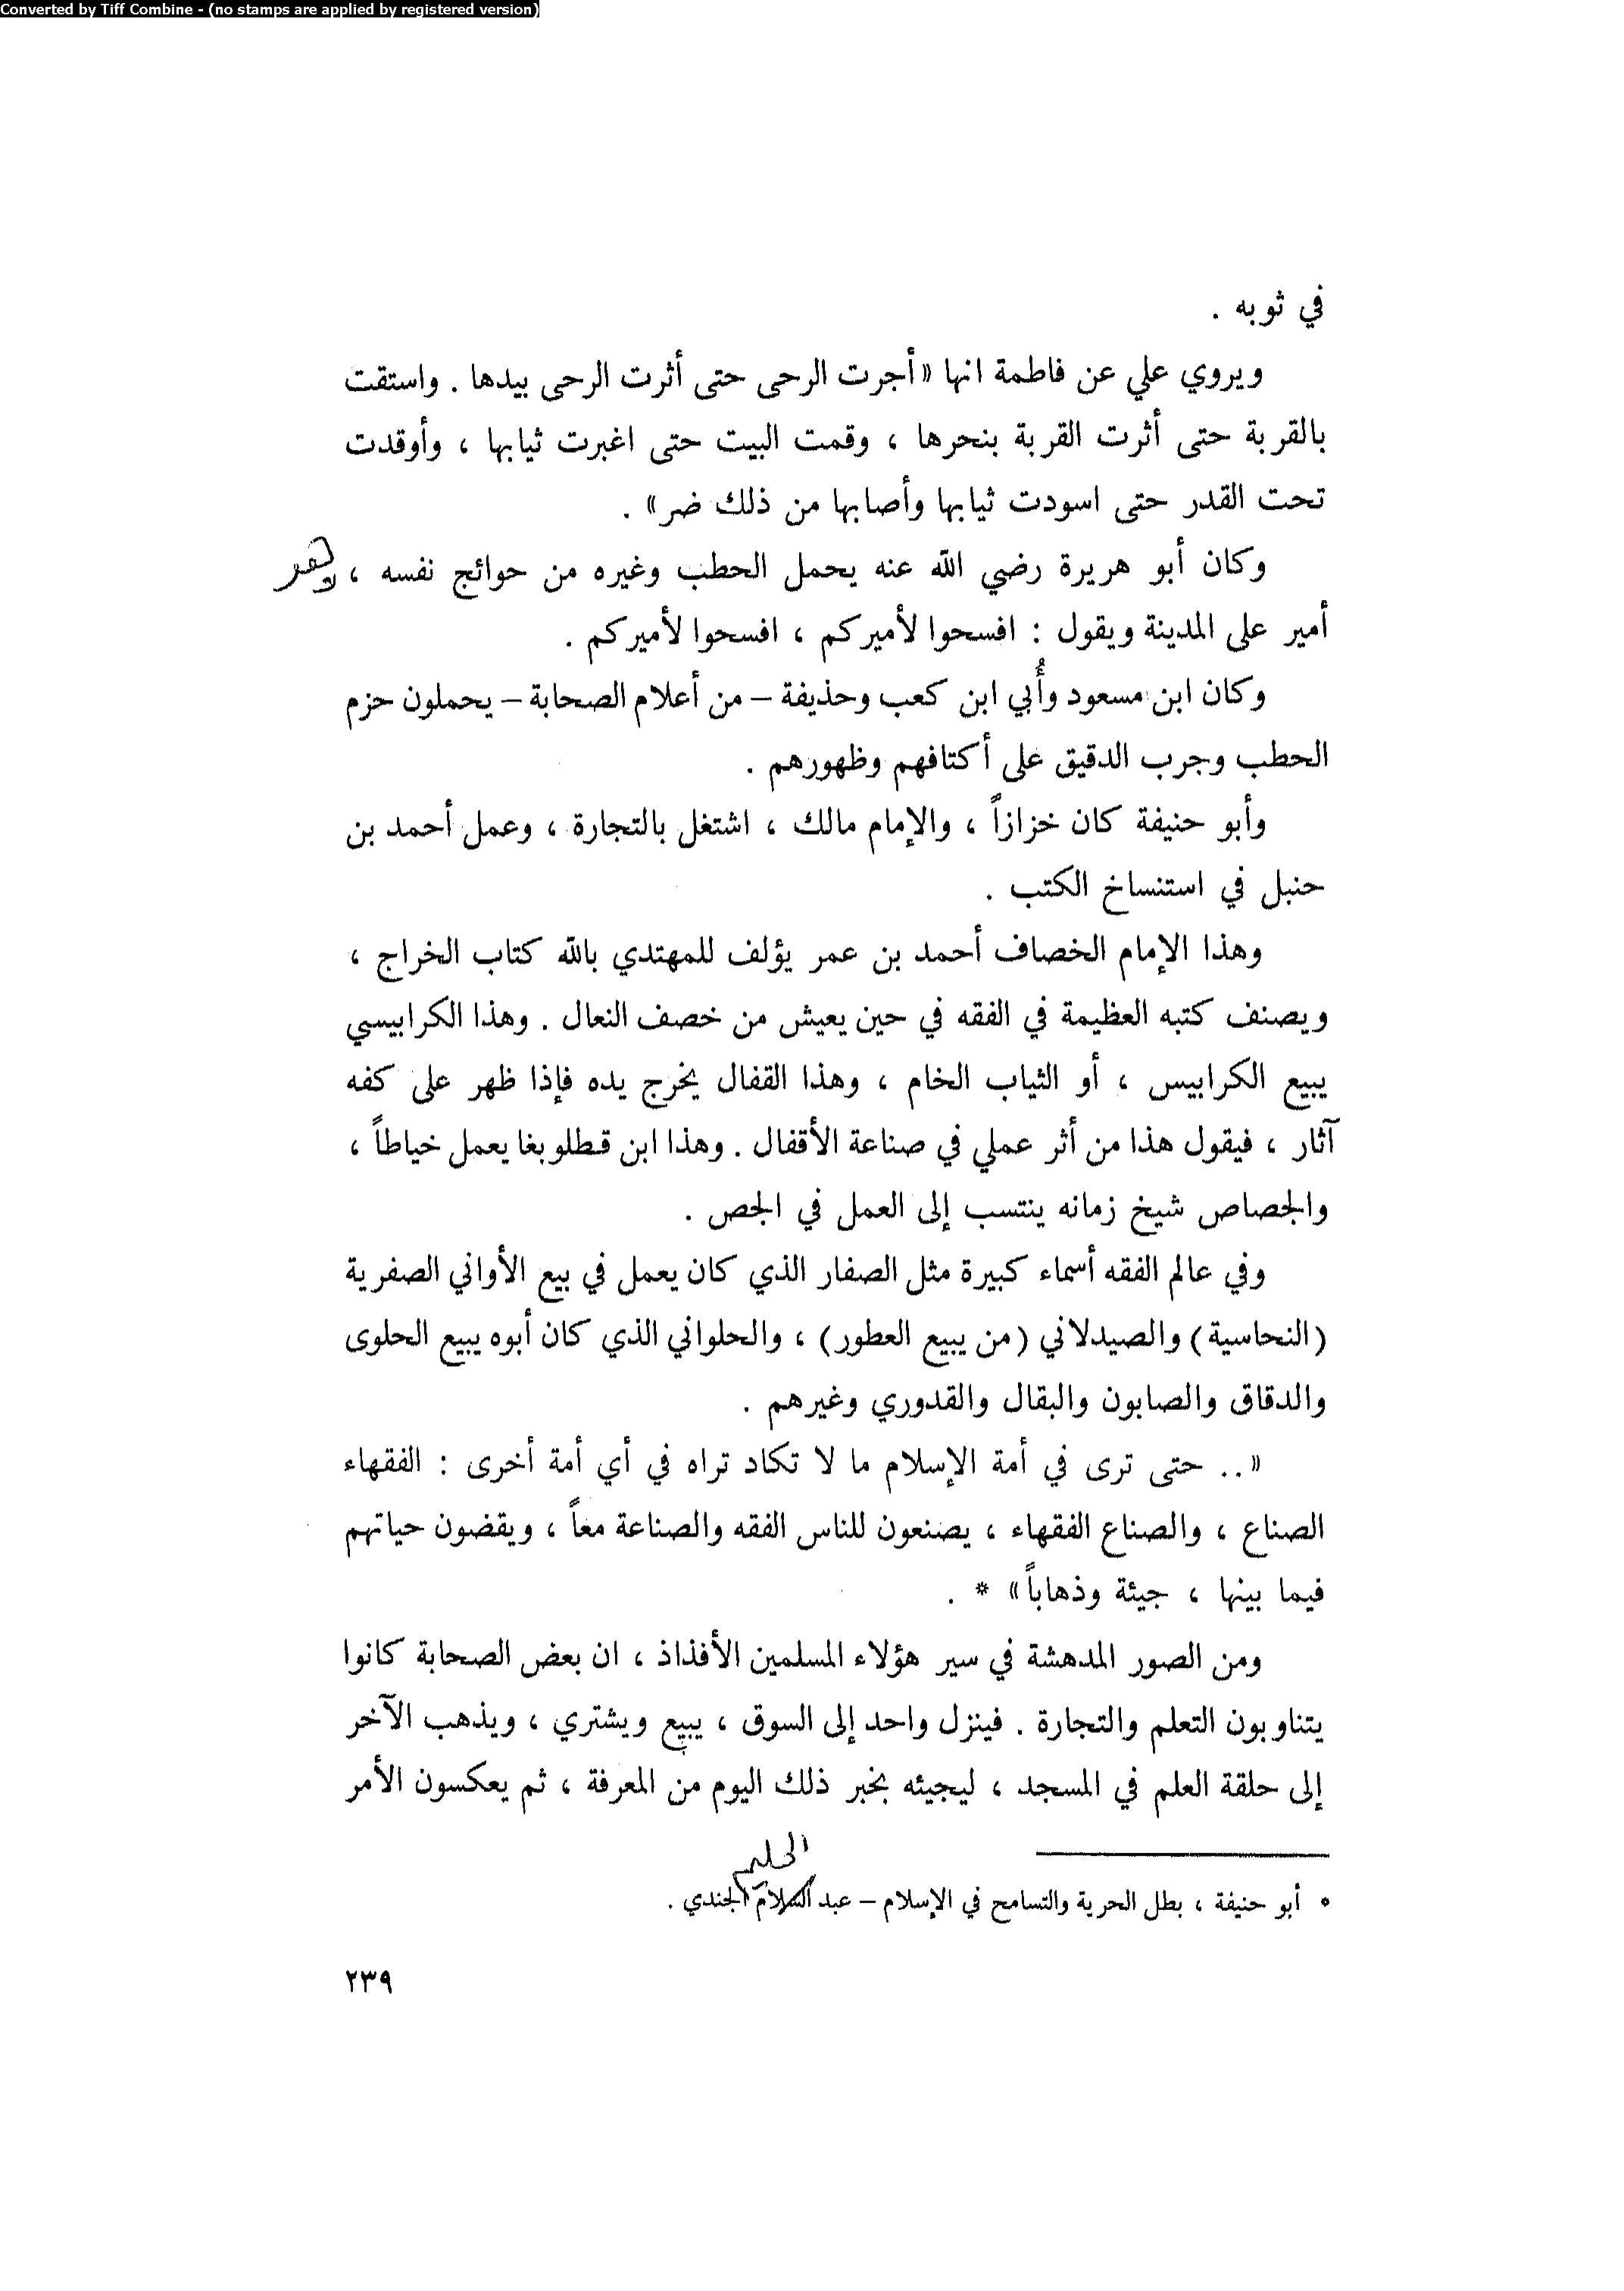 Converted by Tiff Combine - (no stamps are applied by registered version)
في ثوبه .
ويروي علي عن فاطمة انها « أجرت الرحى حتى أثرت الرحى بيدها . واستقت
بالقربة حتى أثرت القربة بنحرها ، وقمت البيت حتى اغبرت ثيابها ، وأوقدت
تحت القدر حتى اسودت ثيابها وأصابها من ذلك ضر» .
وكان أبو هريرة رضي الله عنه يحمل الحطب وغيره من حوائج نفسه ،
أمير على المدينة ويقول : افسحوا لأميركم ، افسحوا لأميركم .
وكان ابن مسعود وأُبي ابن كعب وحذيفة – من أعلام الصحابة – يحملون حزم
الحطب وجرب الدقيق على أكتافهم وظهورهم .
وأبو حنيفة كان خزازاً ، والإمام مالك ، اشتغل بالتجارة ، وعمل أحمد بن
حنبل في استنساخ الكتب .
وهذا الإمام الخصاف أحمد بن عمر يؤلف للمهتدي بالله كتاب الخراج ،
ويصنف كتبه العظيمة في الفقه في حين يعيش من خصف النعال . وهذا الكرابيسي
يبيع الكرابيس ، أو الثياب الخام ، وهذا القفال يخرج يده فإذا ظهر على كفه
آثار ، فيقول هذا من أثر عملي في صناعة الأقفال . وهذا ابن قطلوبغا يعمل خياطاً ،
والجصاص شيخ زمانه ينتسب إلى العمل في الجص .
وفي عالم الفقه أسماء كبيرة مثل الصفار الذي كان يعمل في بيع الأواني الصفرية
(النحاسية) والصيدلاني (من يبيع العطور) ، والحلواني الذي كان أبوه يبيع الحلوى
والدقاق والصابون والبقال والقدوري وغيرهم .
« .. حتى ترى في أمة الإسلام ما لا تكاد تراه في أي أمة أخرى : الفقهاء
الصناع ، والصناع الفقهاء ، يصنعون للناس الفقه والصناعة معاً ، ويقضون حياتهم
فيما بينها ، جيئة وذهاباً» * .
ومن الصور المدهشة في سير هؤلاء المسلمين الأفذاذ ، ان بعض الصحابة كانوا
يتناوبون التعلم والتجارة . فينزل واحد إلى السوق ، يبيع ويشتري ، ويذهب الآخر
إلى حلقة العلم في المسجد ، ليجيئه بخبر ذلك اليوم من المعرفة ، ثم يعكسون الأمر
الحليم
* أبو حنيفة ، بطل الحرية والتسامح في الإسلام – عبد السلام الجندي .
٢٣٩